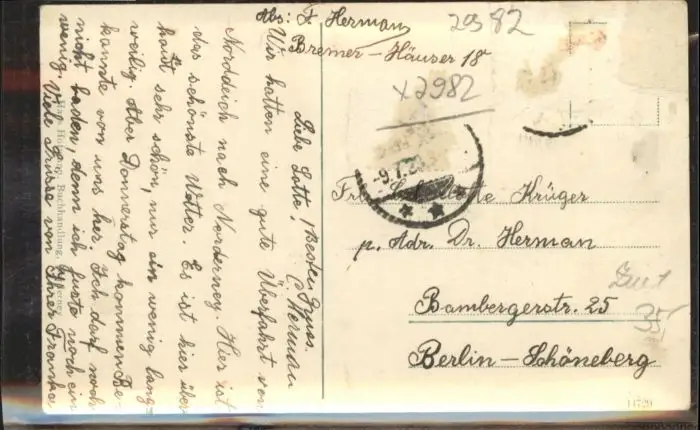 Abs: F. Herman
Bremer-Häuser 18
2982
x2982
Liebe Lotte!
Wir hatten eine gute Überfahrt von
Norddeich nach Norderney. Hier ist
das schönste Wetter. Es ist hier über-
haupt sehr schön, nur ein wenig lang-
weilig. Aber Donnerstag kommen Be-
kannte von uns her. Ich darf noch
nicht baden, denn ich huste noch ein
wenig. Viele Grüsse von Ihrer Franka
Besten Gruss.
Herman
-9.7.2
Lotte Krüger
p. Adr. Dr. Herman
Bambergerstr. 25
Berlin-Schöneberg
Buchhandlung,
14720